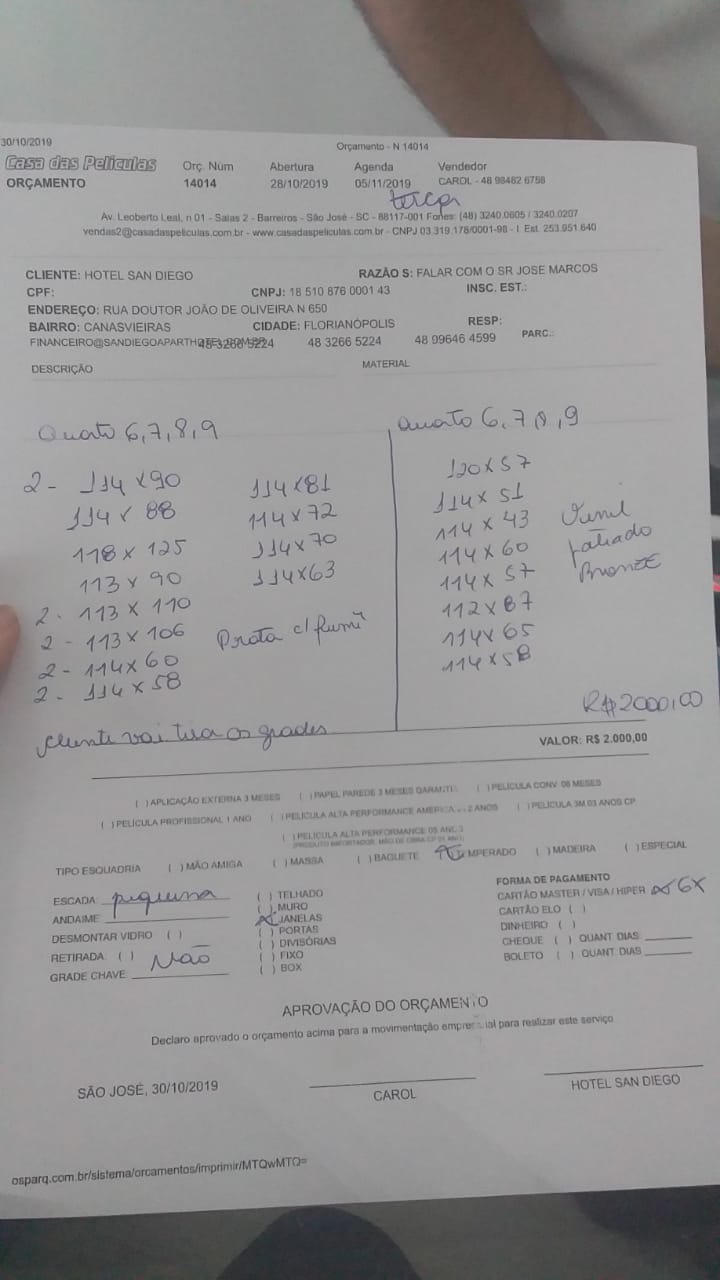 30/10/2019
Orçamento - N 14014
Casa das Películas
ORÇAMENTO
Orç. Núm
14014
Abertura
28/10/2019
Agenda
05/11/2019
terça
Vendedor
CAROL - 48 98462 6758
Av. Leoberto Leal, n 01 - Salas 2 - Barreiros - São José - SC - 88117-001 Fones: (48) 3240.0605 / 3240.0207
vendas2@casadaspeliculas.com.br - www.casadaspeliculas.com.br - CNPJ 03.319.178/0001-98 - I Est. 253.951.640
CLIENTE: HOTEL SAN DIEGO
RAZÃO S: FALAR COM O SR JOSE MARCOS
CPF:
CNPJ: 18 510 876 0001 43
INSC. EST.:
ENDEREÇO: RUA DOUTOR JOÃO DE OLIVEIRA N 650
BAIRRO: CANASVIEIRAS
CIDADE: FLORIANÓPOLIS
RESP:
PARC.:
48 3266 5224
48 3266 5224
48 99646 4599
DESCRIÇÃO
MATERIAL
Quarto 6,7,8,9
2 - 114 x 90
114 x 88
118 x 125
113 x 90
2 - 113 x 110
2 - 113 x 106
2 - 114 x 60
2 - 114 x 58
114 x 81
114 x 72
114 x 70
114 x 63
Prata c/ fumê
Quarto 6,7,8,9
120 x 57
114 x 51
114 x 43
114 x 60
114 x 57
112 x 87
114 x 65
114 x 58
Bronze
Cliente vai tira as grades
R$ 2000,00
VALOR: R$ 2.000,00
( ) APLICAÇÃO EXTERNA 3 MESES ( ) PAPEL PAREDE 3 MESES GARANTIA ( ) PELÍCULA CONV. 06 MESES
( ) PELÍCULA PROFISSIONAL 1 ANO ( ) PELÍCULA ALTA PERFORMANCE 2 ANOS ( ) PELÍCULA 3M 03 ANOS CP
( ) PELÍCULA ALTA PERFORMANCE 05 ANOS
(PRODUTO IMPORTADOR, MÃO DE OBRA CP 01 ANO)
TIPO ESQUADRIA ( ) MÃO AMIGA ( ) MASSA ( ) BAGUETE (X) TEMPERADO ( ) MADEIRA ( ) ESPECIAL
ESCADA pequena
ANDAIME
DESMONTAR VIDRO ( )
RETIRADA: ( ) Não
GRADE CHAVE
( ) TELHADO
( ) MURO
(X) JANELAS
( ) PORTAS
( ) DIVISÓRIAS
( ) FIXO
( ) BOX
FORMA DE PAGAMENTO
CARTÃO MASTER / VISA / HIPER (X) 6X
CARTÃO ELO ( )
DINHEIRO ( )
CHEQUE ( ) QUANT DIAS:
BOLETO ( ) QUANT. DIAS
APROVAÇÃO DO ORÇAMENTO
Declaro aprovado o orçamento acima para a movimentação empresarial para realizar este serviço
SÃO JOSÉ, 30/10/2019
CAROL
HOTEL SAN DIEGO
osparq.com.br/sistema/orcamentos/imprimir/MTQwMTQ=